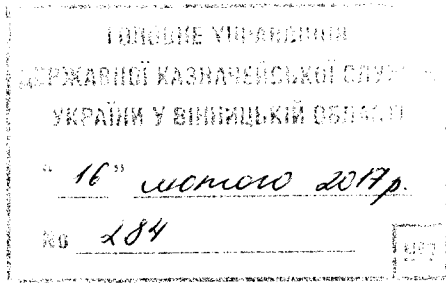 ГОЛОВНЕ УПРАВЛІННЯ
ДЕРЖАВНОЇ КАЗНАЧЕЙСЬКОЇ СЛУЖБИ
УКРАЇНИ У ВІННИЦЬКІЙ ОБЛАСТІ
“ 16 ” лютого 2017р.
№ 284